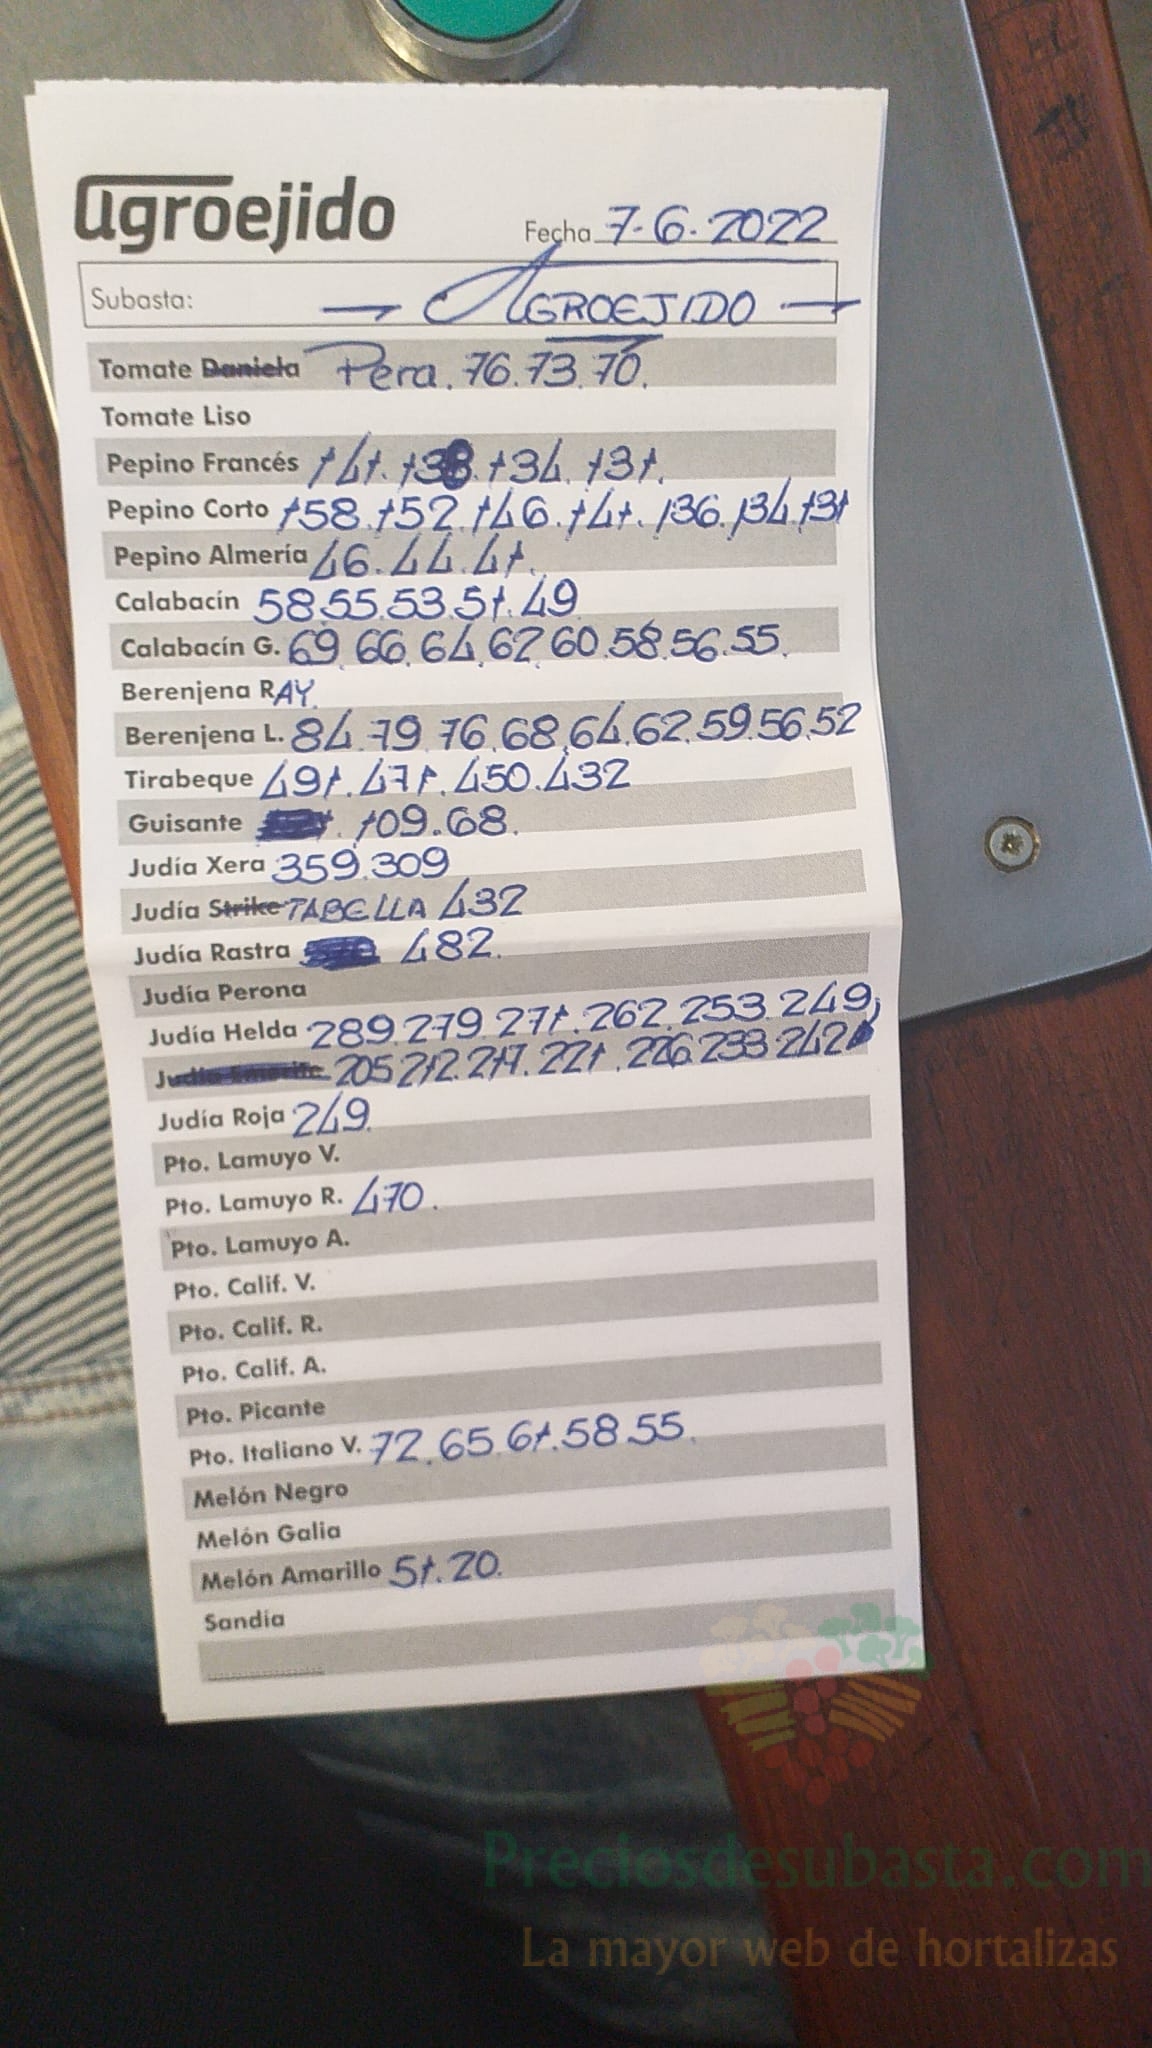 agroejido
Fecha 7-6-2022
Subasta: — AGROEJIDO —
Tomate Daniela Pera. 76.73.70.
Tomate Liso
Pepino Francés 141.138.134.131.
Pepino Corto 158.152.146.141.136.134.131
Pepino Almería 46.44.41.
Calabacín 58.55.53.51.49
Calabacín G. 69.66.64.62.60.58.56.55.
Berenjena RAY.
Berenjena L. 84.79.76.68.64.62.59.56.52
Tirabeque 491.471.450.432
Guisante 109.68.
Judía Xera 359.309
Judía Strike TABELLA 432
Judía Rastra 482.
Judía Perona
Judía Helda 289.279.271.262.253.249,
Judía 205.212.217.221.226.233.242
Judía Roja 249.
Pto. Lamuyo V.
Pto. Lamuyo R. 470.
Pto. Lamuyo A.
Pto. Calif. V.
Pto. Calif. R.
Pto. Calif. A.
Pto. Picante
Pto. Italiano V. 72.65.61.58.55.
Melón Negro
Melón Galia
Melón Amarillo 51.20.
Sandía
Preciosdesubasta.com
La mayor web de hortalizas